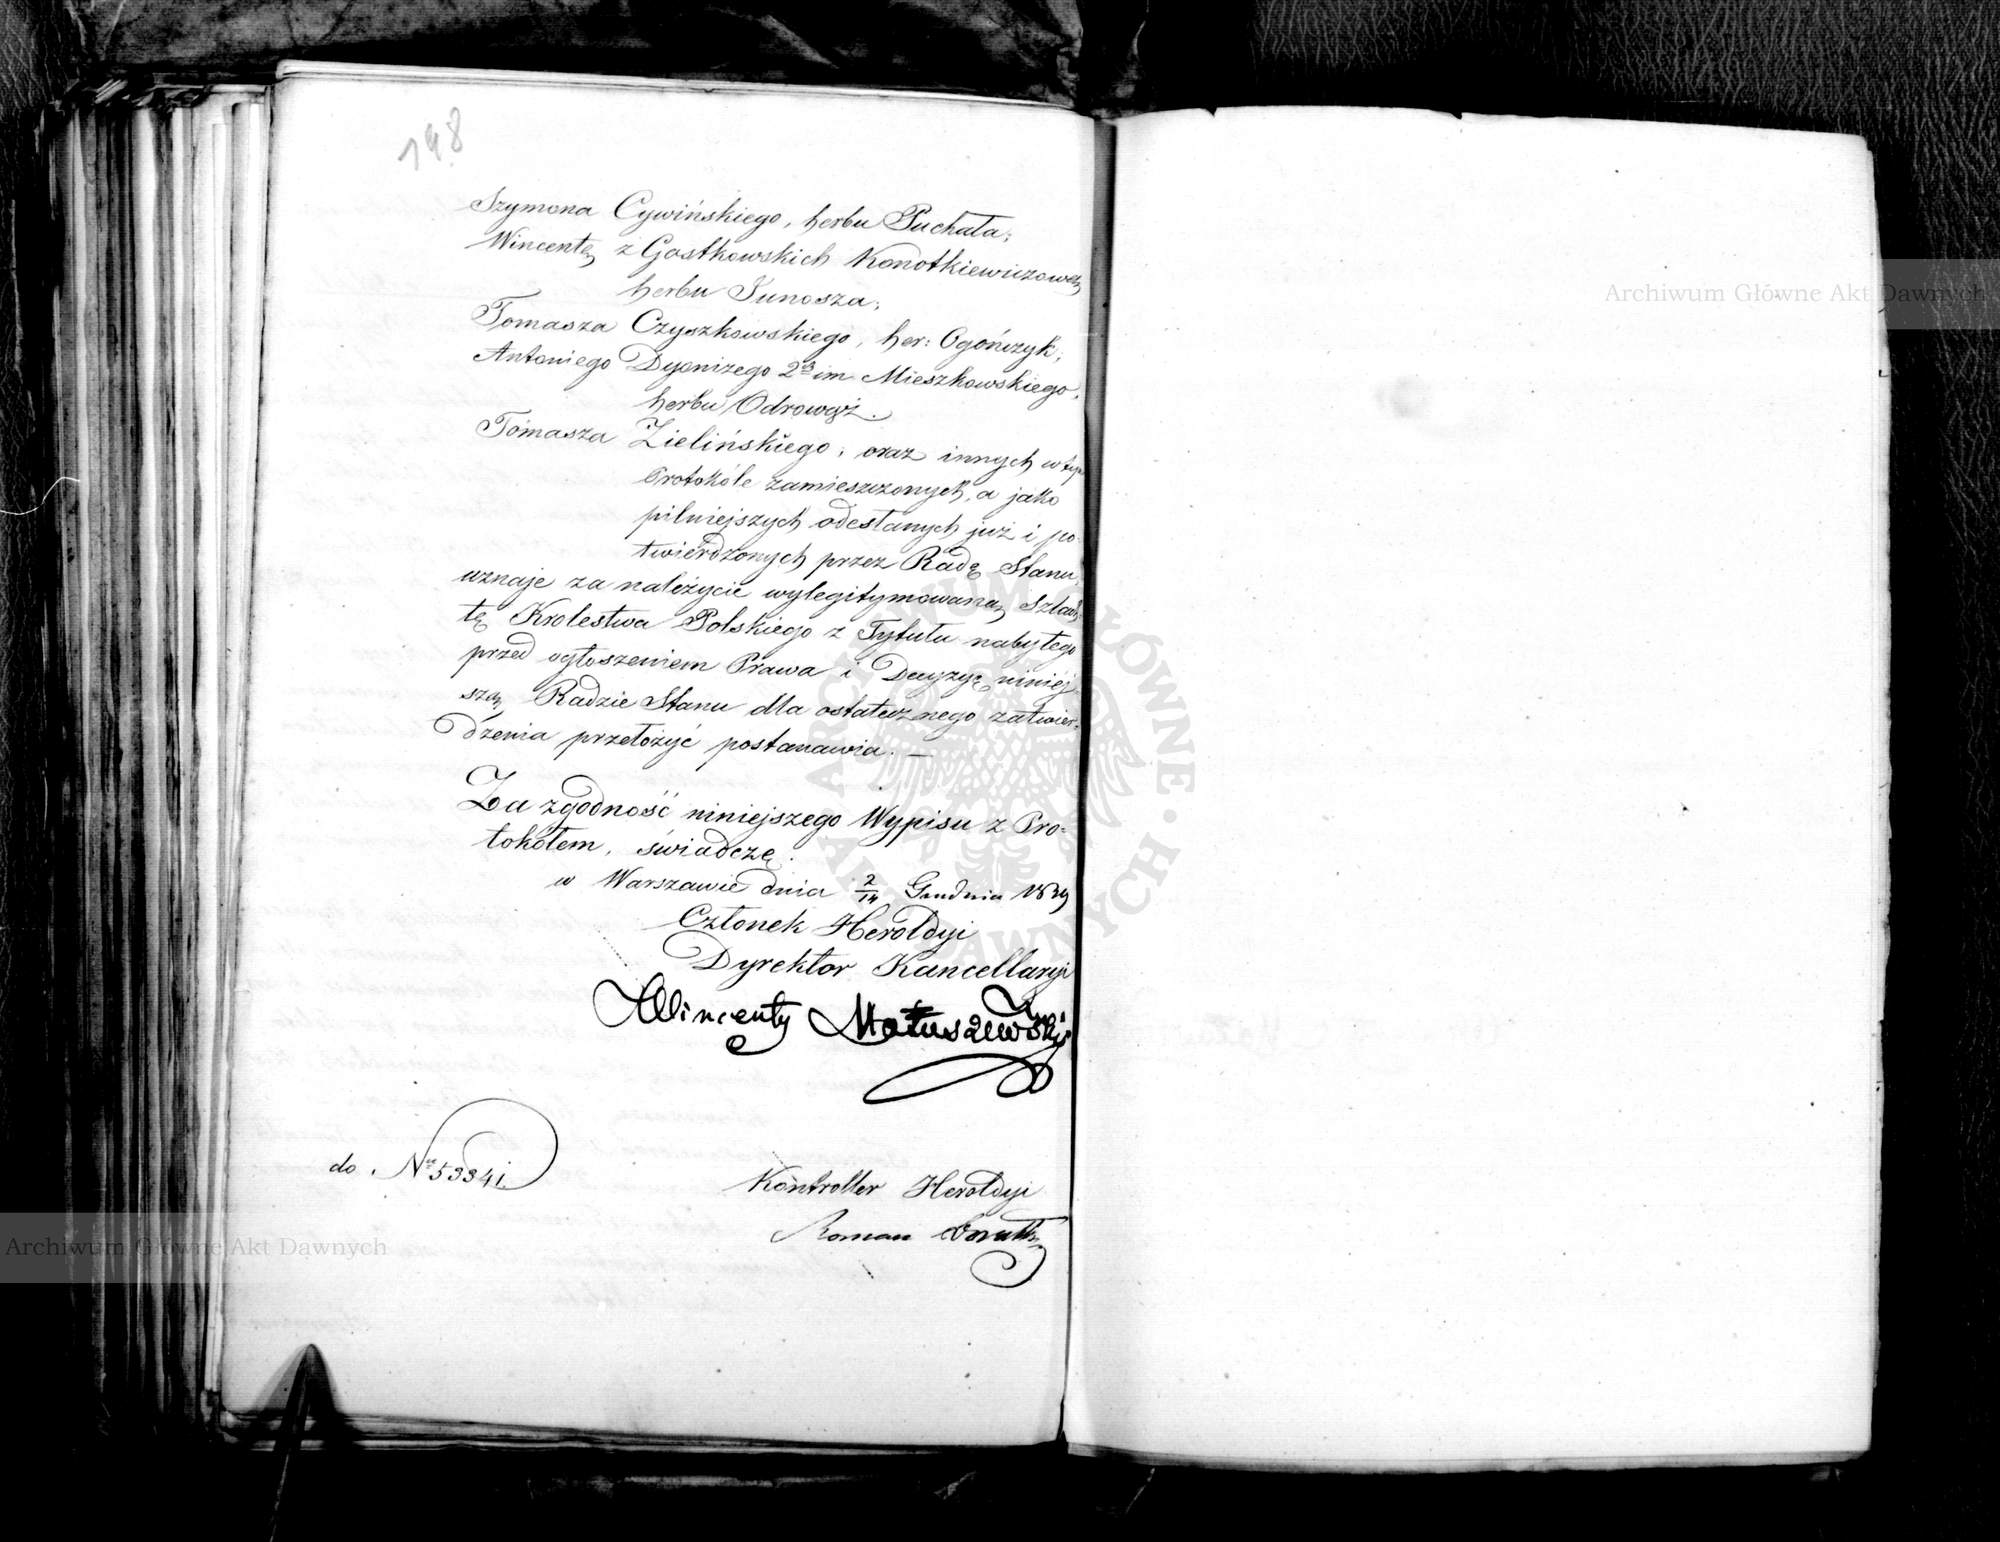 148
Szymona Cywińskiego, herbu Puchała;
Wincentę z Gostkowskich Konotkiewiczową
herbu Junosza;
Tomasza Czyszkowskiego, her: Ogończyk;
Antoniego Dyonizego 2ga im. Mieszkowskiego,
herbu Odrowąż.
Tomasza Zielińskiego, oraz innych w tym
Protokóle zamieszczonych, a jako
pilniejszych odesłanych już i po-
twierdzonych przez Radę Stanu,
uznaje za należycie wylegitymowaną Szlach-
tę Krolestwa Polskiego z Tytułu nabytego
przed ogłoszeniem Prawa i Decyzyę niniej-
szą Radzie Stanu dla ostatecznego zatwier-
dzenia przełożyć postanawia. —
Za zgodność niniejszego Wypisu z Pro-
tokółem, świadczę.
w Warszawie dnia 2/14 Grudnia 1839
Członek Heroldyi
Dyrektor Kancellaryi
Wincenty Matuszewski
do Nru 53341.
Kontroller Heroldyi
Roman
Archiwum Główne Akt Dawnych
Archiwum Główne Akt Dawnych
ARCHIWUM GŁÓWNE AKT DAWNYCH